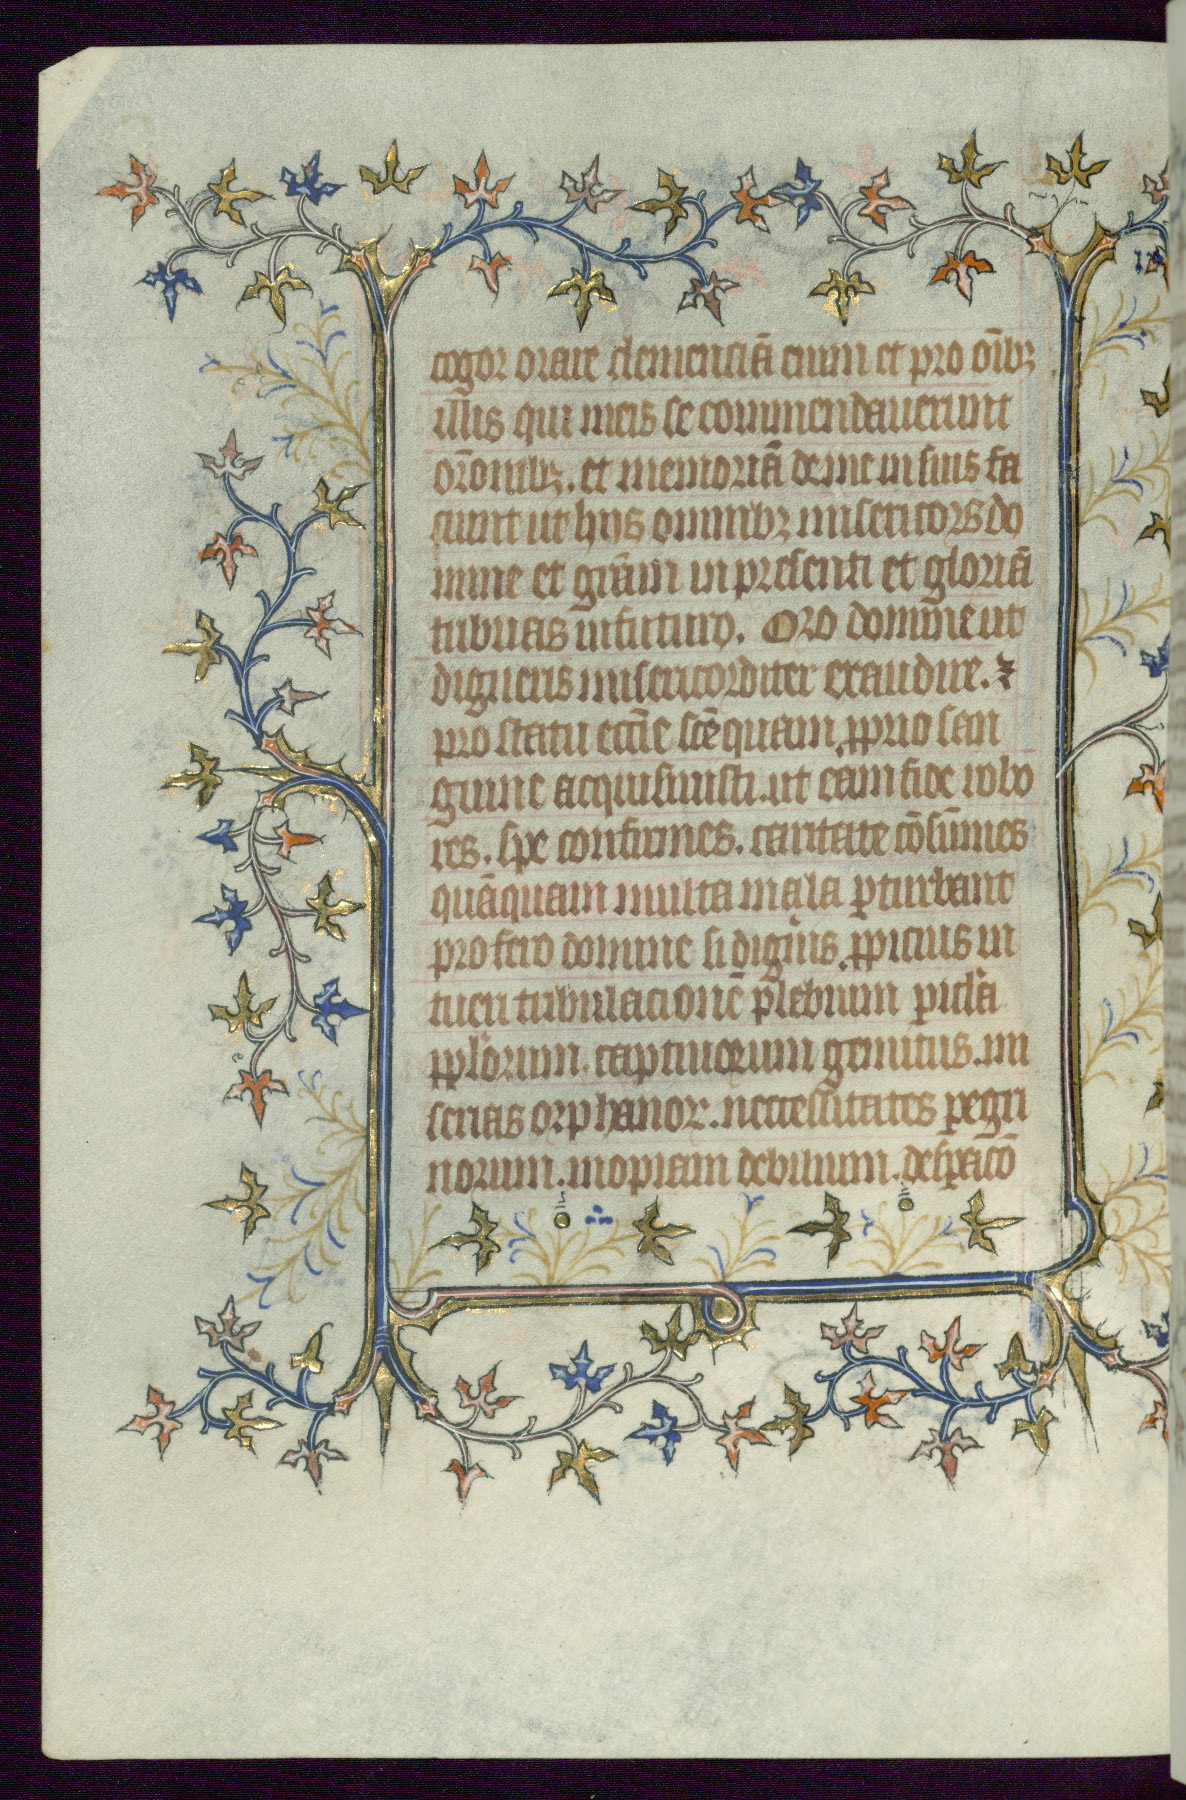 cogor orare clemenciā eium et pro oībꝫ
illis qui meis se commendauerunt
orōnibꝫ. et memoriā de me in suis fa
ciunt ut hijs omnibꝫ misericors do
mine et grām in presenti et gloriā
tribuas in futuro. Oro domine ut
digneris misericorditer exaudire. ⁊
pro statu eccīe scē quam ꝓprio san
guine acquisiuisti. ut eam fide robo
res. spe confirmes. caritate cōsūmes
quāquam multa mala ꝑturbant
pro fero domine si digīus. ꝓpicius in
tueri tribulacionē plebium picla
ppl'orum. captiuorum gemitus. mi
serias orphanor. necessitates ꝑegri
norum. inopiam debilium. desꝑacō